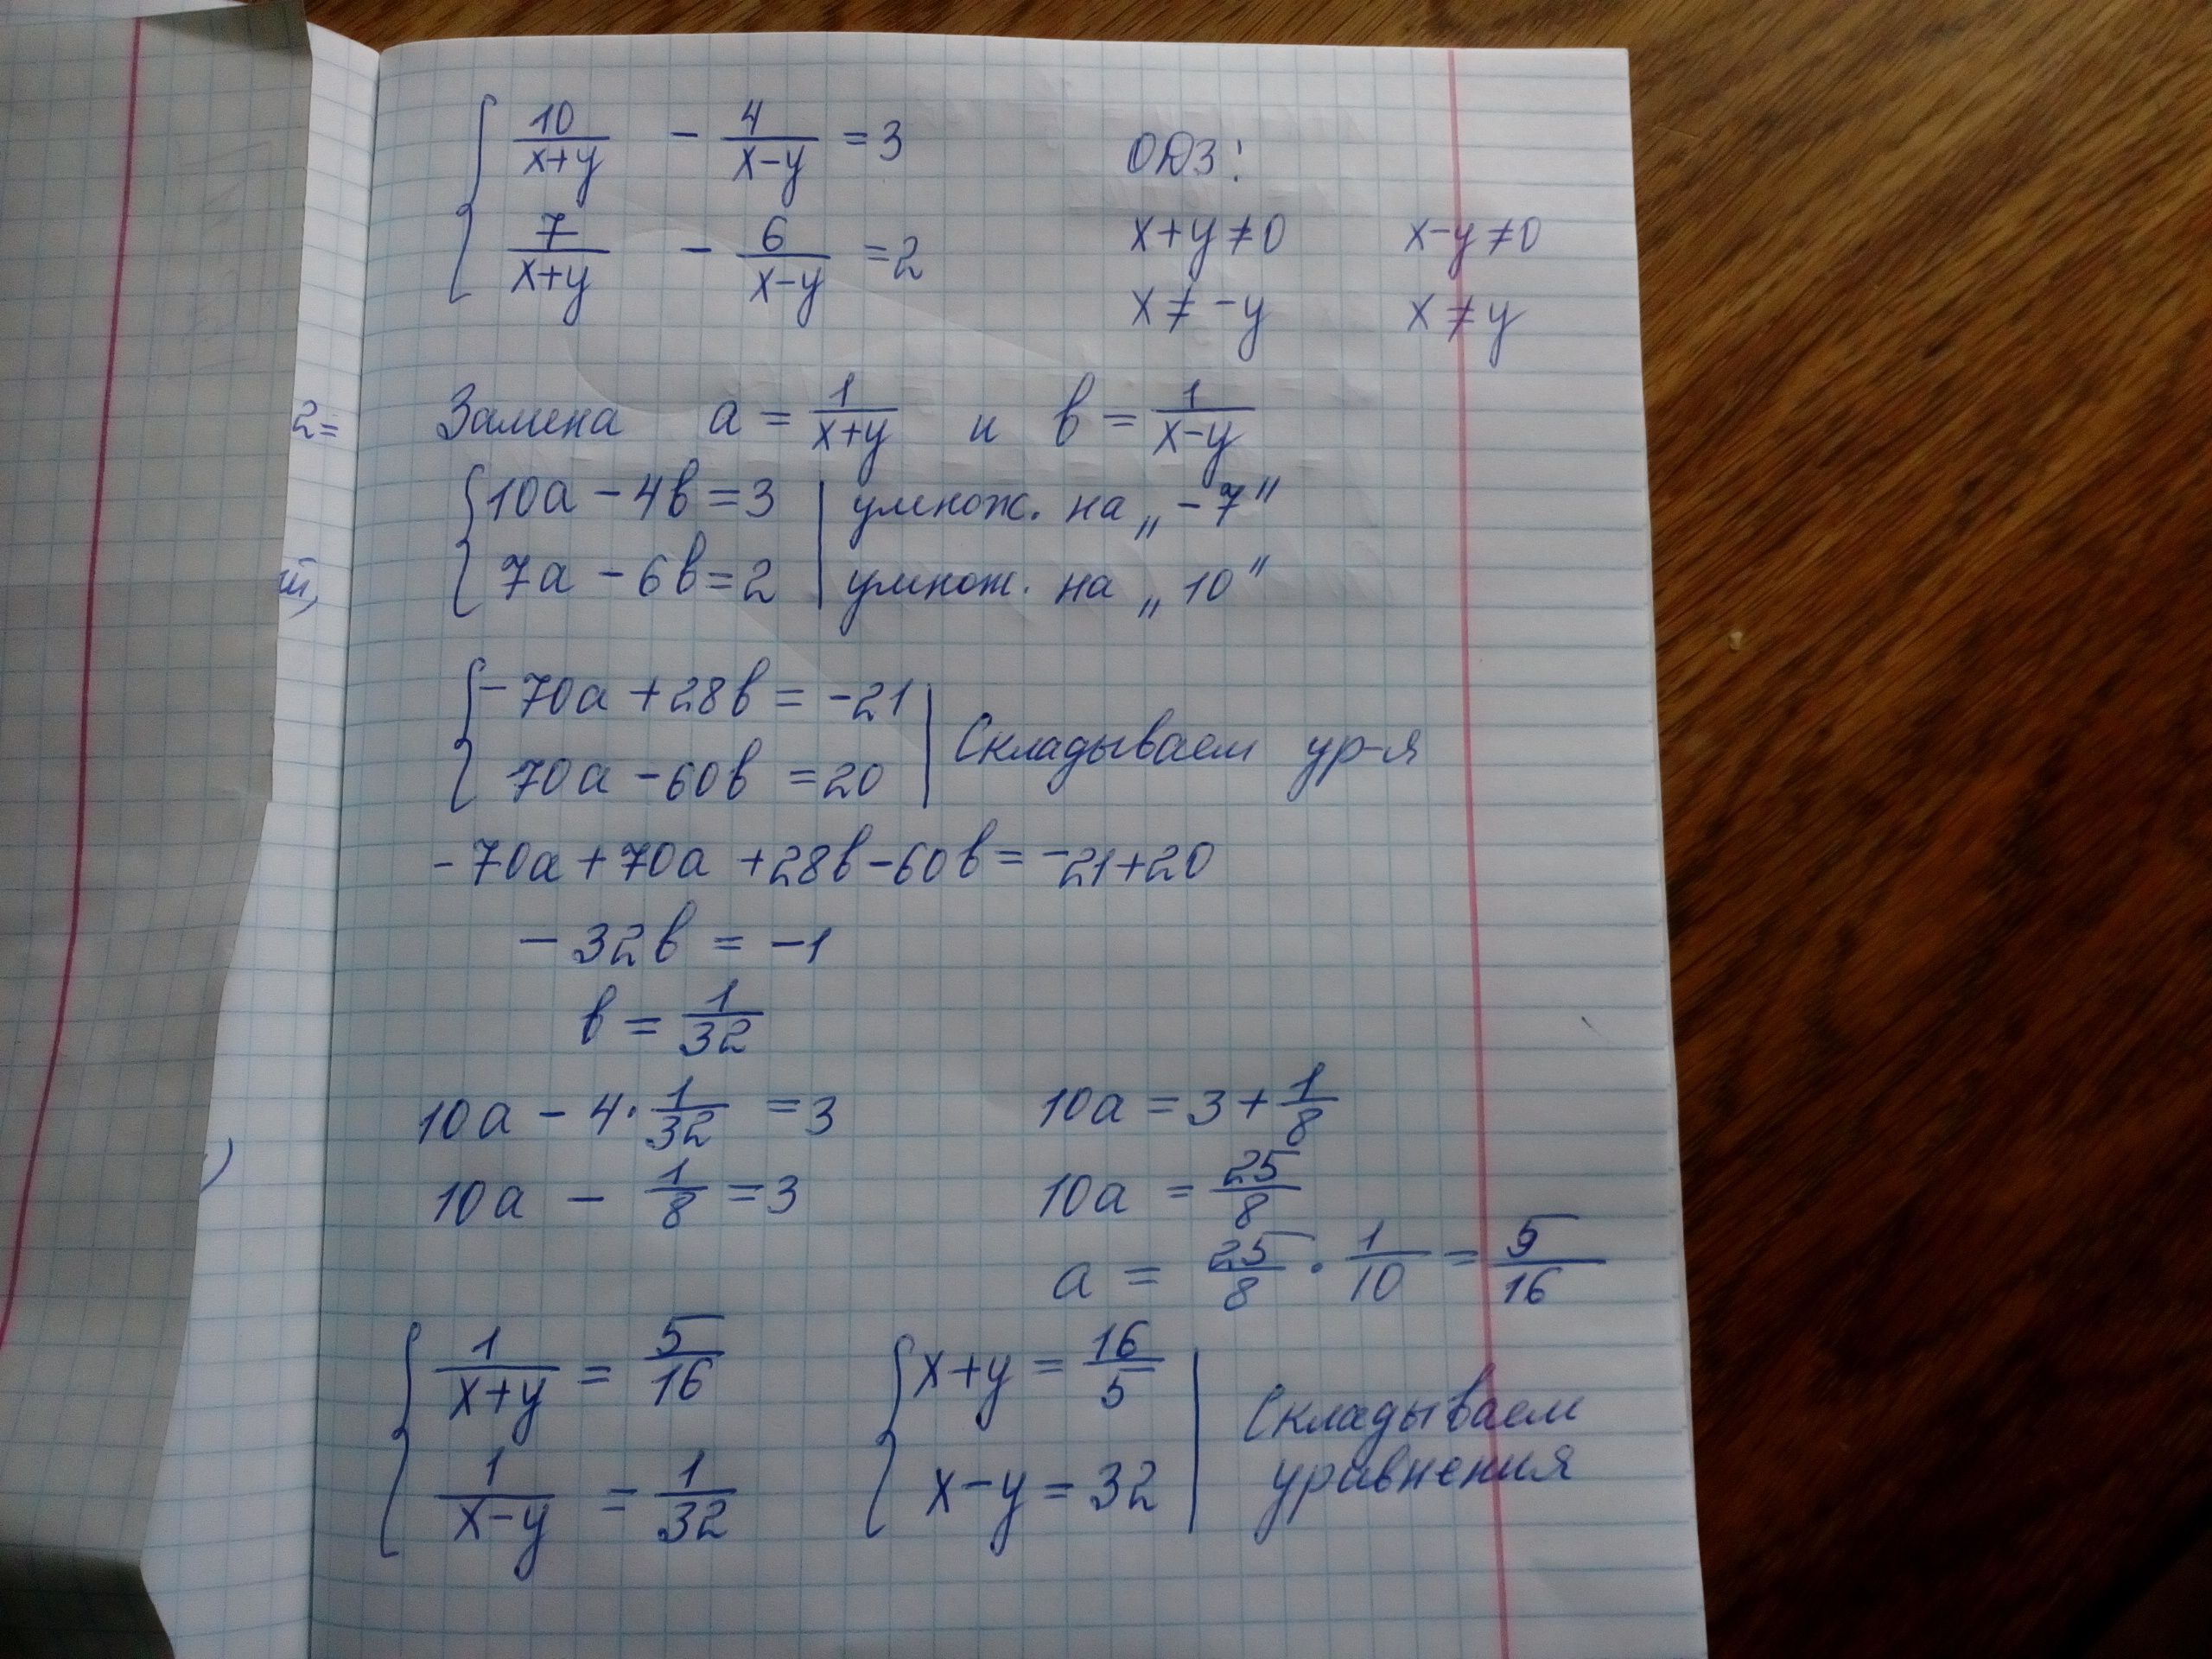 10/(x+y) - 4/(x-y) = 3
7/(x+y) - 6/(x-y) = 2
ОДЗ:
x+y≠0 x-y≠0
x≠-y x≠y
2=
Замена a = 1/(x+y) и в = 1/(x-y)
10a - 4в = 3 | умнож. на „-7"
7a - 6в = 2 | умнож. на „10"
-70a + 28в = -21
70a - 60в = 20 | Складываем ур-я
-70a + 70a + 28в - 60в = -21 + 20
-32в = -1
в = 1/32
10a - 4·1/32 = 3 10a = 3 + 1/8
10a - 1/8 = 3 10a = 25/8
a = 25/8 · 1/10 = 5/16
1/(x+y) = 5/16 x+y = 16/5
1/(x-y) = 1/32 x-y = 32
Складываем
уравнения